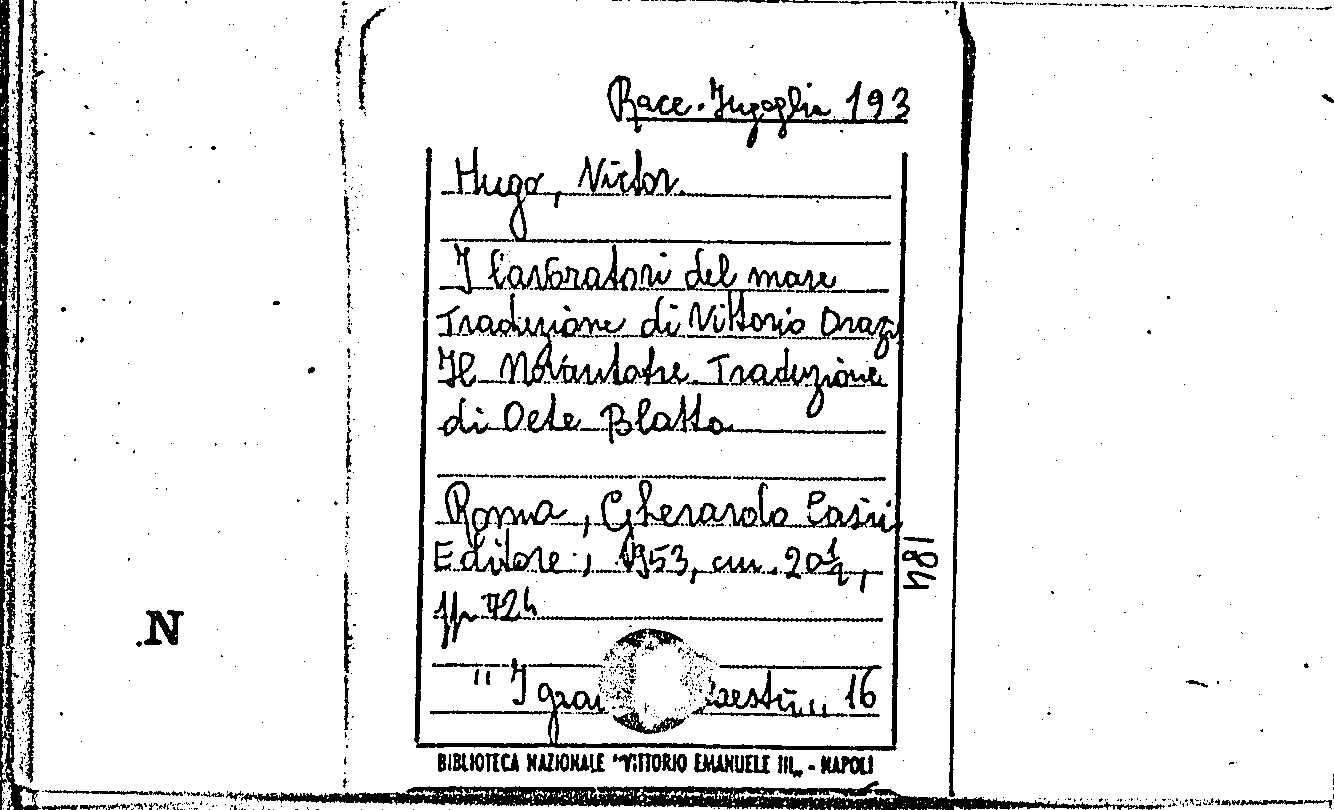 Race. Ingoglia 193
Hugo, Victor
I lavoratori del mare
Traduzione di Vittorio Orazi
Il Novantatre. Traduzione
di Oete Blatto
Roma, Gherardo Casini
Editore, 1953, cm. 20½,
pp 724
184
N
" I gran maestri „ 16
BIBLIOTECA NAZIONALE "VITTORIO EMANUELE III„ - NAPOLI